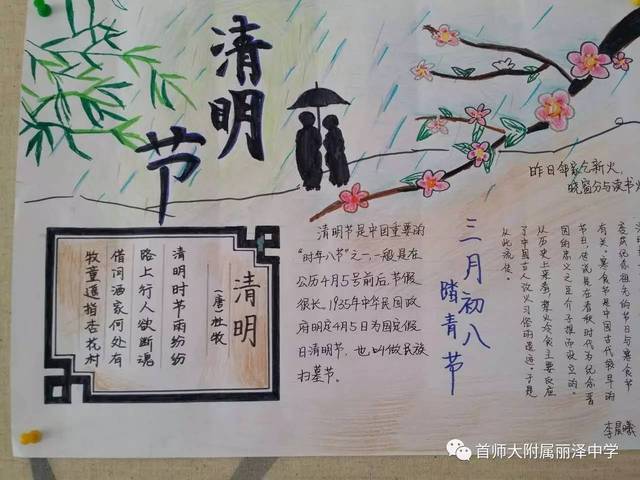 清明节
昨日邻家乞新火,
晓窗分与读书
清明
(唐)杜牧
清明时节雨纷纷
路上行人欲断魂
借问酒家何处有
牧童遥指杏花村
清明节是中国重要的
"时年八节"之一,一般是在
公历4月5号前后,节假
很长,1935年中华民国政
府明定4月5日为国定假
日清明节,也叫做民族
扫墓节。
三月初八
踏青节
委祭祖先的节日与寒食节
有关,寒食节是中国古代较早的
节日,传说是在春秋时代为纪念晋
国的忠义之臣介子推而设立的。
从历史上来看,禁火冷食主要反应
了中国古人改火习俗的遗迹。于是
从此流传。
李晨曦
首师大附属丽泽中学